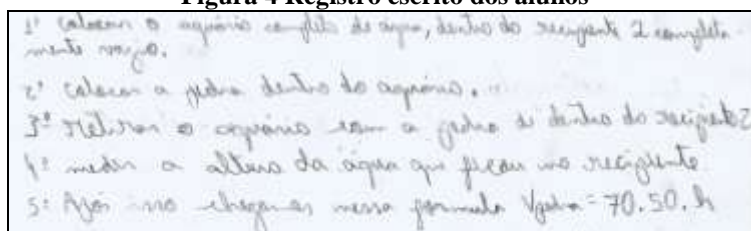 Figura 4 Registro escrito dos alunos
1º colocar o aquário completo de água, dentro do recipiente 2 completa
mente vazio.
2º colocar a pedra dentro do aquário.
3º Retirar o aquário com a pedra de dentro do recipiente 2
4º medir a altura da água que ficou no recipiente
5º Após isso chegamos nessa formula Vpedra = 70.50.h